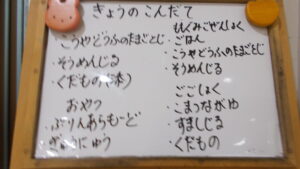 きょうのこんだて
・こうやどうふのたまごとじ
・そうめんじる
・くだもの
おやつ
・ぷりんあらもーど
・ぎゅうにゅう
もぐもぐごはん
・ごはん
・こうやどうふのたまごとじ
・そうめんじる
ごごしょく
・こまつながゆ
・すましじる
・くだもの